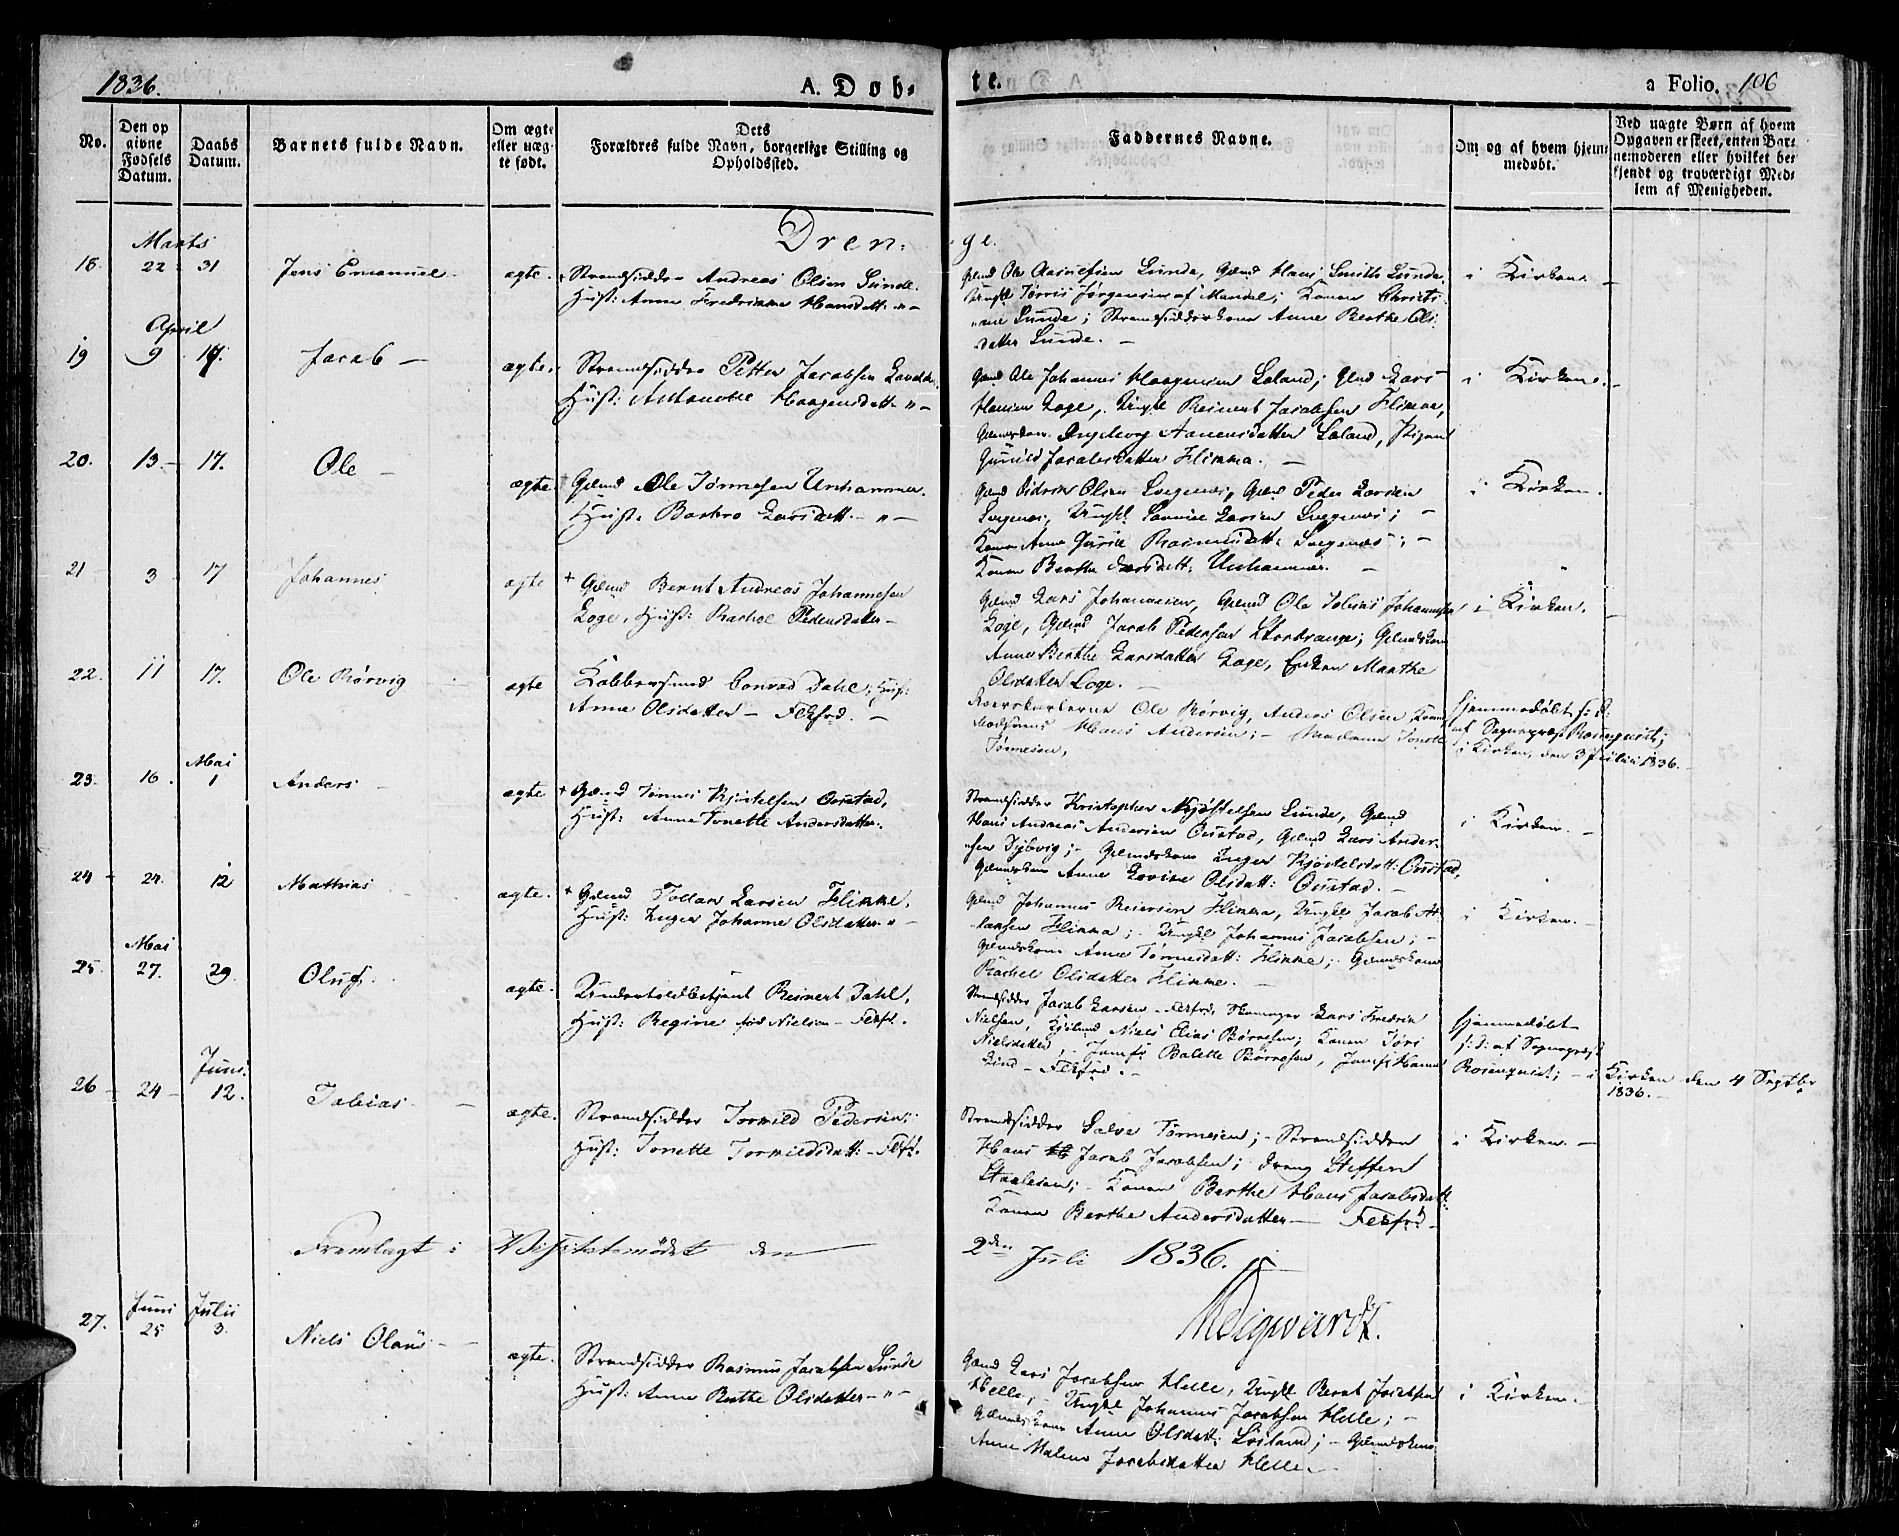 1836.
A. Døb-
te.
a Folio. 106
No.
Den op
givne
Fødsels
Datum.
Daabs
Datum.
Barnets fulde Navn.
Om ægte
eller uæg-
te født.
Dets
Forældres fulde Navn, borgerlige Stilling og
Opholdssted.
Faddernes Navne.
Om og af hvem hjem-
medøbt.
Ved uægte Børn af hvem
Opgaven er skeet, enten Bar-
nemoderen eller hvilket be-
kjendt og troværdigt Med-
lem af Menigheden.
Drenge.
18. Marts 22 - 31 Jens Emanuel - ægte.
Strandsidder Andreas Olsen Lunde.
Hust: Anne Fredrikke Hansdatt: " -
Gmd Ole Lunde, Gmd Hans Smith Lunde
Ungk Tørris Jørgensen af Mandal; Konen Christi-
ane Lunde; Strandsidderkone Anne Berthe Ols-
datter Lunde. -
i Kirken. -
19 April 9 17. Jacob - ægte.
Strandsidder Petter Jacobsen
Hust: Haagensdatt: " -
Gmd Ole Johannes Haagensen Loland; Gmd Lars
Hansen Loge, Ungk Reinert Jacobsen Flikka,
Ingeborg Aanensdatter Loland, Pigen
Gunild Jacobsdatter Flikka. -
i Kirken. -
20. 13. - 17. Ole - ægte.
Gmd Ole Tønnesen Unhammer.
Hust: Barbro Larsdatt. - " -
Gmd Didrik Olsen Svegenes, Gmd Peder Larsen
Svegenes, Ungk Larsen Svegenes; -
Konen Anne Rasmusdatt: Svegenes; -
Konen Berthe Larsdatt: Unhammer. -
i Kirken.
21 3 17 Johannes ægte
+ Gmd Bernt Andreas Johannesen
Loge, Hust: Rachel Pedersdatter -
Gmd Lars Johannesen, Gmd Ole Tobias Johannesen
Loge, Gmd Jacob Pedersen Stordrange; Gmdskone
Anne Berthe Larsdatter Loge, Enken Marthe
Olsdatter Loge. -
i Kirken.
22. 11 17. Ole Rørvig - ægte
Kobbersmed Conrad Dahl; Hust:
Anne Olsdatter - Flkfrd. -
Ole Rørvig, Anders Olsen
Hans Andersen; - Madame Tonette
Tønnesen,
Hjemmedøbt
af Sogneprest Rosenqvist;
i Kirken, den 3 Julii 1836. -
23. 16. Mai 1 Anders - ægte
+ Gmd Tønnes Kjøstelsen Oustad,
Hust: Anne Tonette Andersdatter.
Strandsidder Kristopher Kjøstelsen Lunde, Gmd
Hans Andreas Andersen Oustad, Gmd Lars Ander-
sen Dybvig; - Gmdskone Inger Kjøstelsdatt: Oustad,
Gmdskone Anne Lovise Olsdatt: Oustad. -
i Kirken. -
24 - 24. 12 Mathias ægte.
+ Gmd Larsen Flikke,
Hust: Inger Johanne Olsdatter " -
Gmd Johannes Reiersen Flikka, Ungk Jacob
Hansen Flikka; - Ungk Johannes Jacobsen; -
Gmdskone Anne Tønnesdatt: Flikke; - Gmdskone
Rachel Olsdatter Flikke. -
i Kirken. -
25. Mai 27. 29. Oluf. ægte.
Underholdbetjent Reinert Dahl,
Hust: Regine fød Nielsen - Flkfr.
Strandsidder Jacob Larsen - Flkfrd, Lars Fredrik
Nielsen, Niels Elias Børresen; Konen Tøri
Nielsdatter, Jomfr Bolette Børresen, Jomfr Hanne
Lind - Flkfrd. -
Hjemmedøbt
af Sogneprest
Rosenqvist; - i Kirken den 4 Septbr
1836. -
26 - 24 - Juni 12. Tobias. - ægte.
Strandsidder Tormild Pedersen;
Hust: Tonette Tormildsdatt: - Flkf.
Strandsidder Salve Tønnesen; - Strandsidder
Hans Jacob Jacobsen; dreng Steffen
Staalesen; - Konen Berthe Hans Jacobsdatt
Konen Berthe Andersdatter - Flkfrd -
i Kirken. -
Fremlagt i Visitatsmødet den 2den Juli 1836.
27. Juni 25 Julii 3. Niels Olaus - ægte.
Strandsidder Rasmus Jacobsen Lunde
Hust: Anne Berthe Olsdatter - " -
Gmd Lars Jacobsen Helle, Ungk Bernt Jacobsen
Helle; - Ungk Johannes Jacobsen Helle; -
Gmdskone Anne Olsdatt: Loland; - Gmdskone
Anne Malene Jacobsdatter Helle. -
i Kirken. -